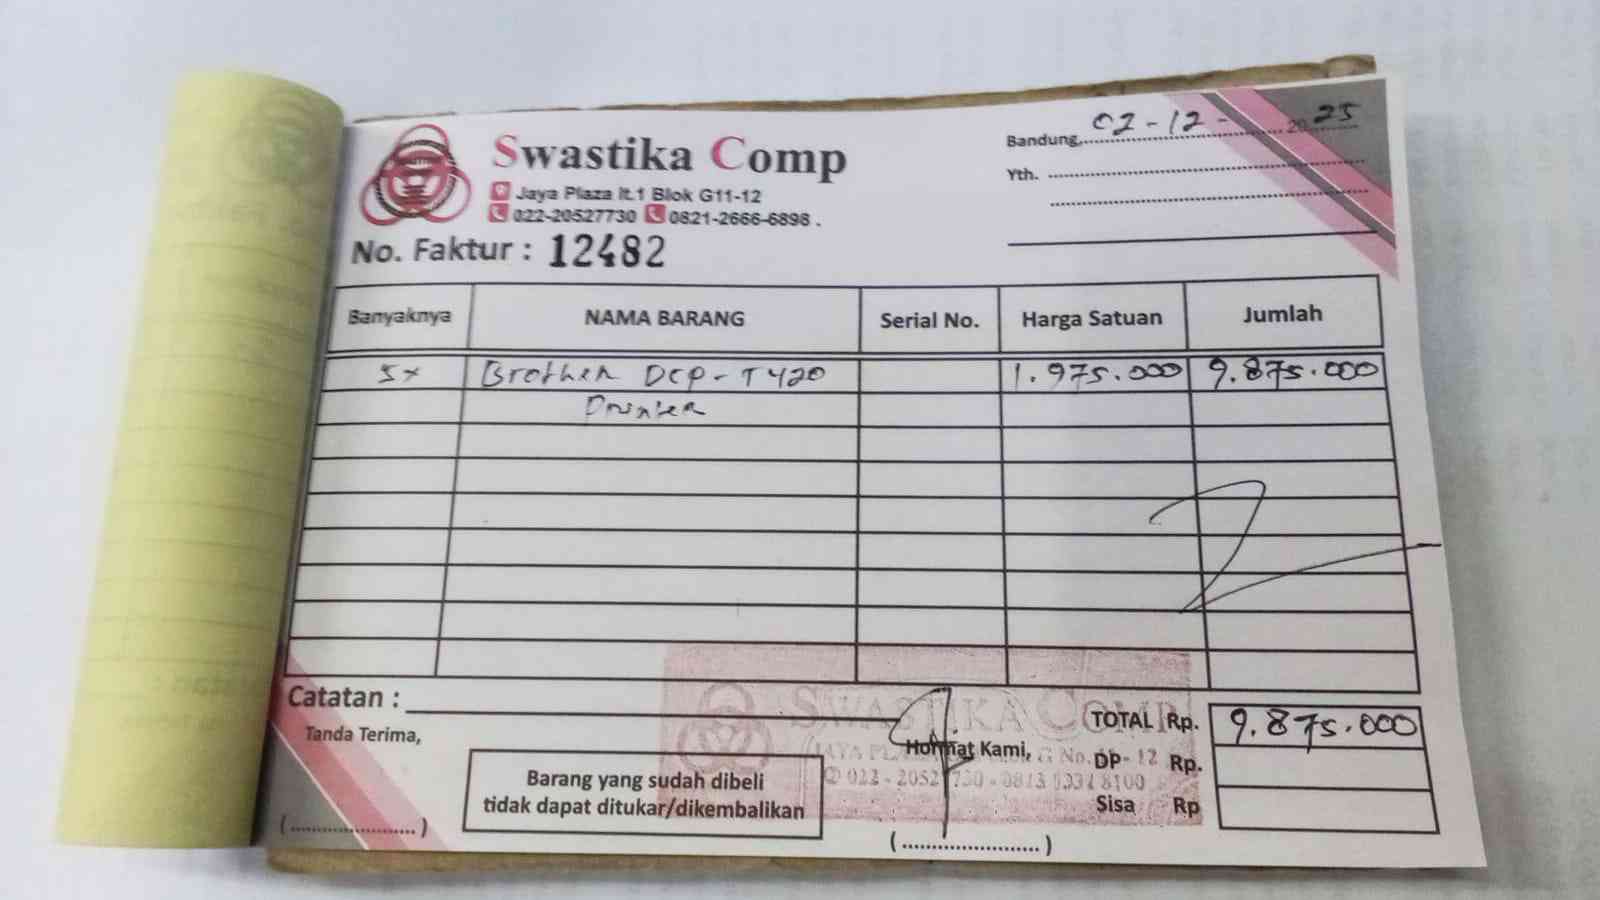 Swastika Comp
Jaya Plaza lt.1 Blok G11-12
022-20527730 0821-2666-6898 .
No. Faktur : 12482
Bandung, 02-12-2025
Yth.
Banyaknya NAMA BARANG Serial No. Harga Satuan Jumlah
5x Brother DCP-T420 1.975.000 9.875.000
Printer
Catatan :
Tanda Terima,
Barang yang sudah dibeli
tidak dapat ditukar/dikembalikan
Hormat Kami,
SWASTIKA COMP
JAYA PLAZA G No. 12
022 - 20527730 - 0813
TOTAL Rp. 9.875.000
DP Rp.
Sisa Rp